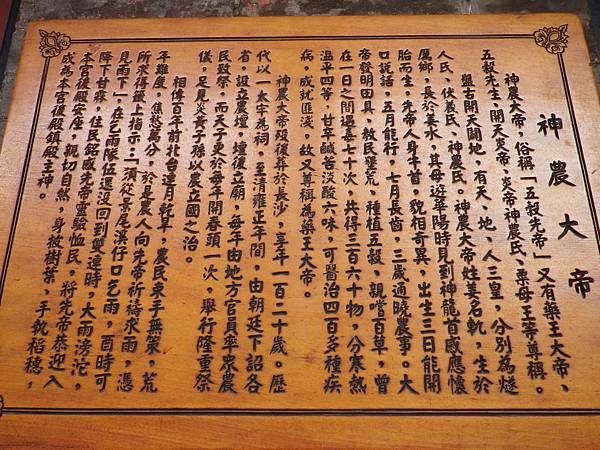 神農大帝
神農大帝，俗稱「五穀先帝」又有藥王大帝、
五穀先生、開天炎帝、炎帝神農氏、粟母王等尊稱。
盤古開天闢地，有天、地、人三皇，分別為燧
人氏、伏羲氏、神農氏。神農大帝姓姜名軌，生於
厲鄉，長於姜水，其母遊華陽時見到神龍首感應懷
胎而生，先帝人身牛首，貌相奇異，出生三日能開
口説話，五月能行，七月長齒，三歲通曉農事。大
帝發明田具，教民墾荒、種植五穀，親嚐百草，曾
在一日之間遇毒七十次，共得三百六十物，分寒熱
溫平四等，甘辛鹹苦淡酸六味，可醫治四百多種疾
病，成就匪淺，故又尊稱為藥王大帝。
神農大帝歿後葬於長沙，享年一百二十歲。歷
代以一太牢為祠，至清雍正年間，由朝廷下詔各
省，設立農壇，壇後立廟，每年由地方官員率眾農
民致祭，而天子更於每年開春頭一次，舉行隆重祭
儀，足見炎黃子孫以農立國之治。
相傳百年前北台連月乾旱，農民束手無策，荒
年難度，焦愁萬分，於是農人向先帝祈禱求雨，憑
所求得籤上指示：「須從景尾溪仔口乞雨，酉時可
見雨下」，在乞雨隊伍還沒回到雙連時，大雨滂沱，
降下甘霖，住民銘感先帝靈驗恤民，將先帝恭迎入
本宮後殿安座，親切自然，身披樹葉，手執稻穗，
成為本宮後殿鎮殿主神。